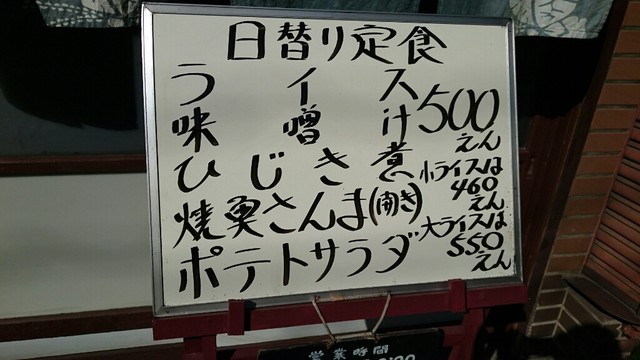 日替り定食
ライス
味噌汁
ひじき煮
焼魚さんま(開き)
ポテトサラダ
500
えん
小ライスは
460
えん
大ライスは
550
えん
営業時間